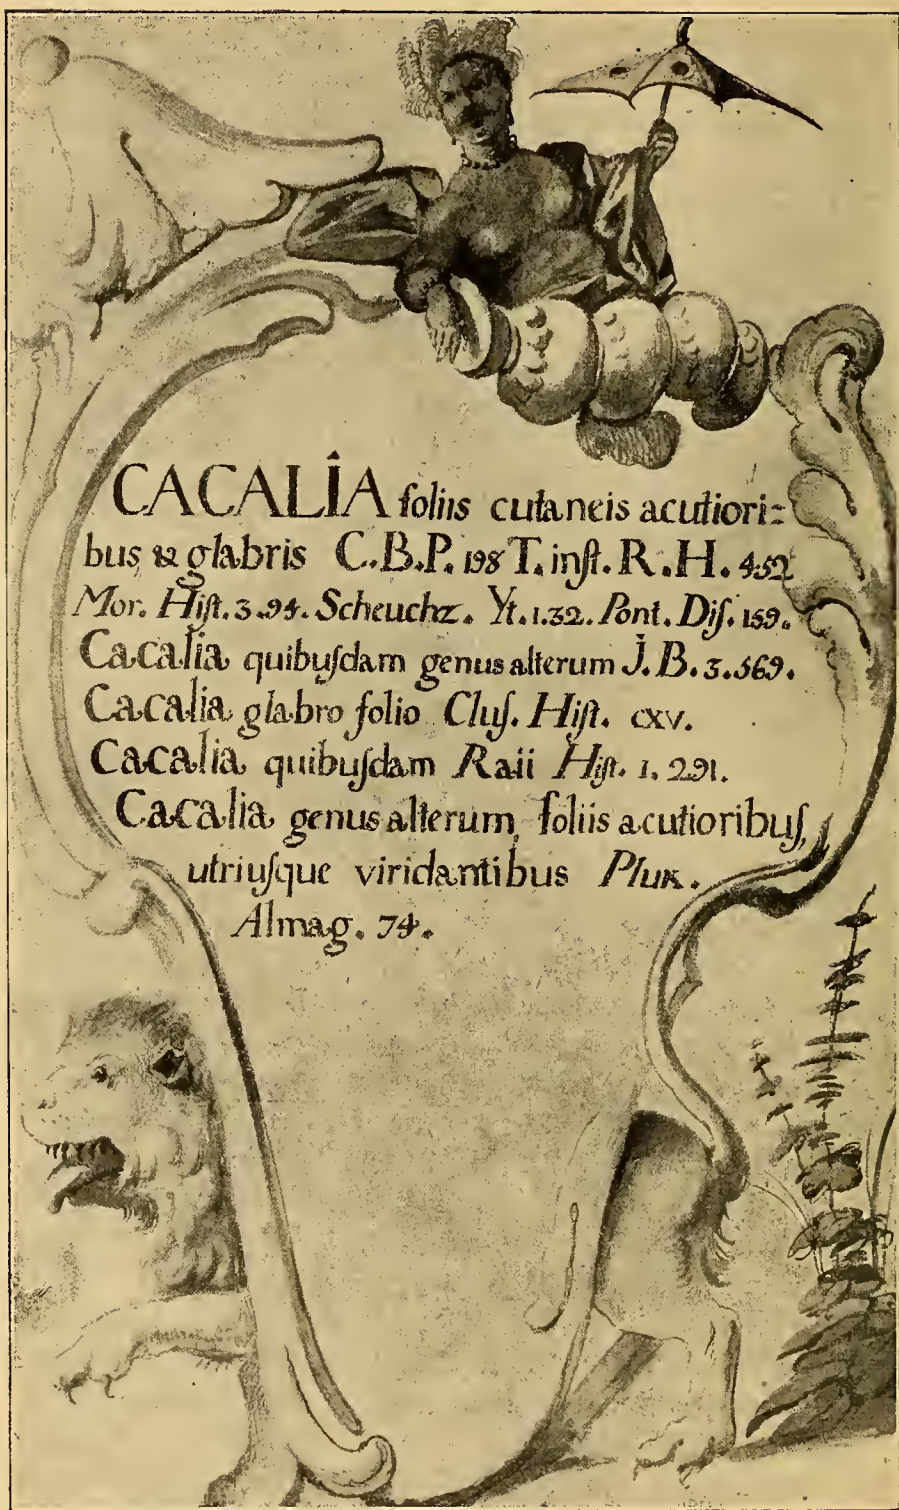 CACALIA foliis cutaneis acutiori=
bus & glabris C.B.P. 198 T. inſt. R.H. 452
Mor. Hiſt. 3.94. Scheuchz. Yt. 1.32. Pont. Diſ. 159.
Cacalia quibuſdam genus alterum J.B. 3.569.
Cacalia glabro folio Cluſ. Hiſt. cxv.
Cacalia quibuſdam Raii Hiſt. 1. 291.
Cacalia genus alterum, foliis acutioribuſ,
utriuſque viridantibus Pluk.
Almag. 74.